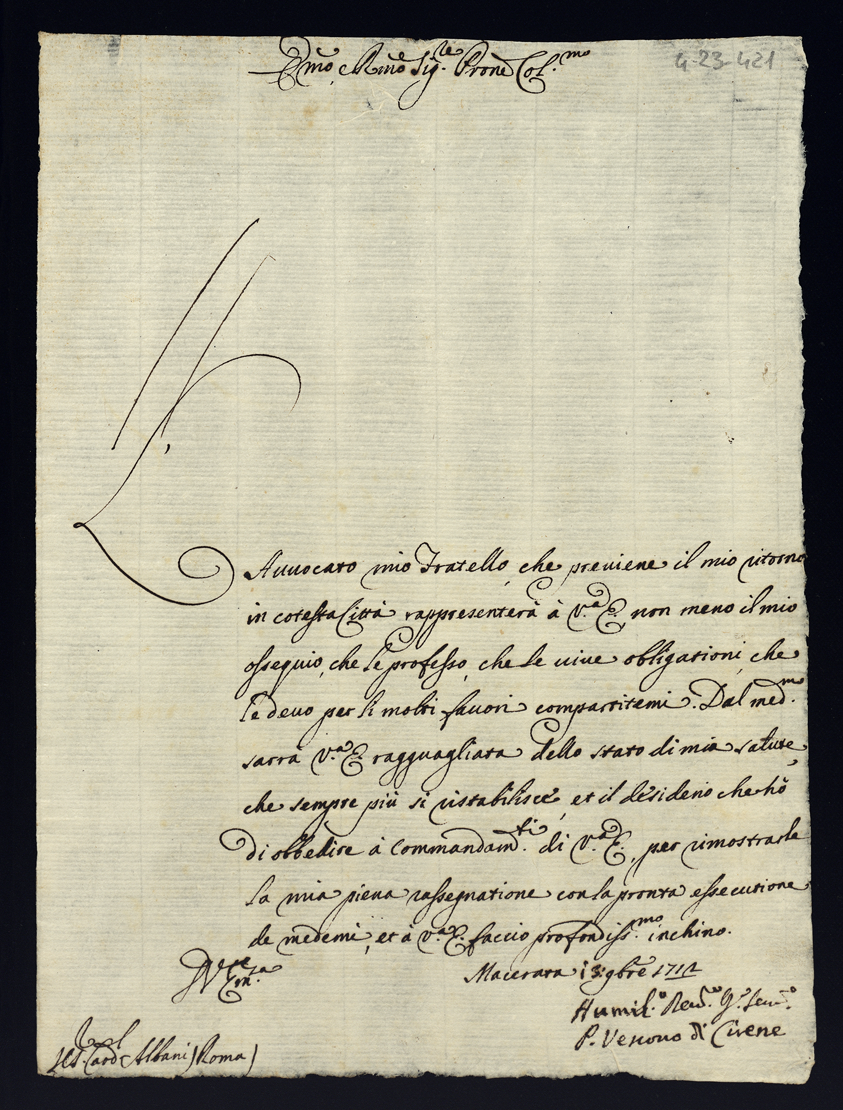 Emo, e Rmo Sig.re Prone Col.mo
4-23-421
L'
Auuocato mio Fratello, che preuiene il mio ritorno
in cotesta Città rappresenterà à V.a E. non meno il mio
ossequio, che le professo, che le uiue obligationi, che
le deuo per li molti fauori compartitemi. Dal med.mo
sarrà V.a E. ragguagliata dello stato di mia salute,
che sempre più si ristabilisce, et il desiderio che hò
di obbedire à Commandam.ti di V.a E., per rimostrarle
la mia piena rassegnatione con la pronta essecutione
de medemi, et à V.a E. faccio profondiss.mo inchino.
Di V.a Em.za
Macerata i3 9bre 1712
Humil.o Deu.mo
P. Vescouo di Cirene
Card. Albani) Roma)